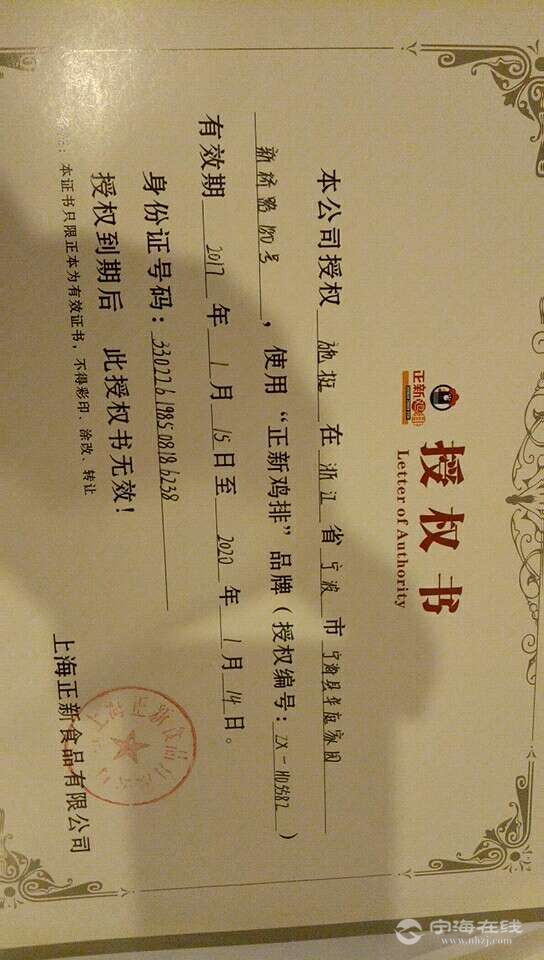 正新鸡排
授权书
Letter of Authority
本公司授权 施挺 在 浙江 省 宁波 市 宁海县华庭家园
新桥路 号 ，使用“正新鸡排”品牌（授权编号：ZX-HD5587）
有效期 2017 年 1 月 15 日至 2020 年 1 月 14 日。
身份证号码：330226198508196238
授权到期后 此授权书无效！
：本证书只限正本为有效证书，不得彩印、涂改、转让
上海正新食品有限公司
上海正新食品有限公司
宁海在线
www.nhzj.com